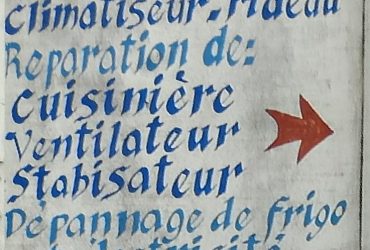 Climatiseur. rideau
Reparation de:
Cuisinière
Ventilateur
Stabisateur
Dépannage de frigo